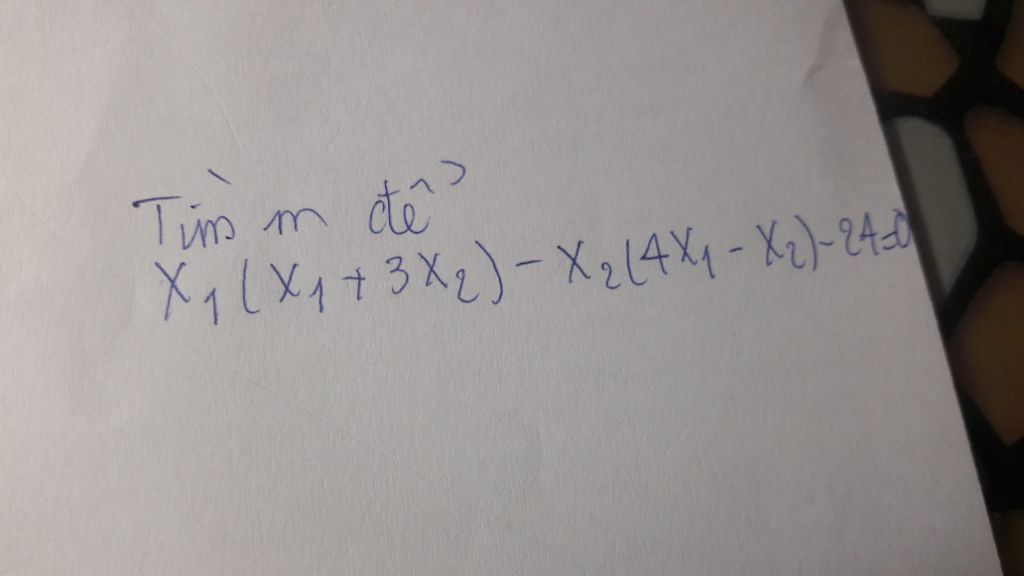 Tìm m để
X₁(X₁ + 3X₂) - X₂(4X₁ - X₂) - 24 = 0